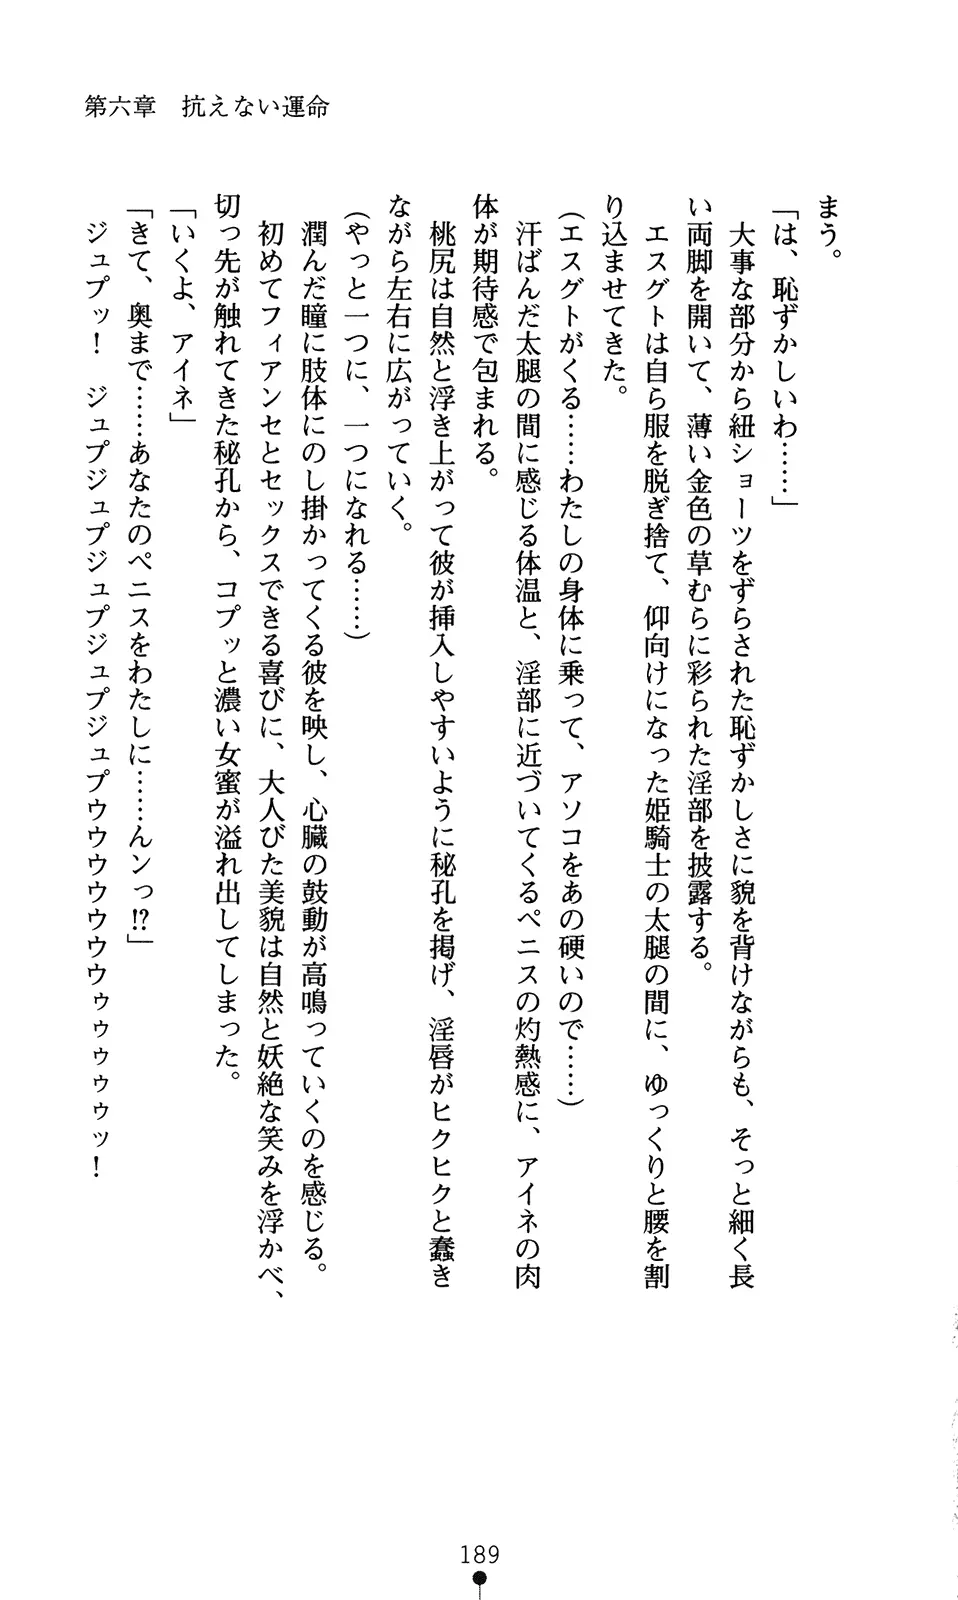 第六章　抗えない運命
まう。
「は、恥ずかしいわ……」
　大事な部分から紐ショーツをずらされた恥ずかしさに貌を背けながらも、そっと細く長
い両脚を開いて、薄い金色の草むらに彩られた淫部を披露する。
　エスグトは自ら服を脱ぎ捨て、仰向けになった姫騎士の太腿の間に、ゆっくりと腰を割
り込ませてきた。
（エスグトがくる……わたしの身体に乗って、アソコをあの硬いので……）
　汗ばんだ太腿の間に感じる体温と、淫部に近づいてくるペニスの灼熱感に、アイネの肉
体が期待感で包まれる。
　桃尻は自然と浮き上がって彼が挿入しやすいように秘孔を掲げ、淫唇がヒクヒクと蠢き
ながら左右に広がっていく。
（やっと一つに、一つになれる……）
　潤んだ瞳に肢体にのし掛かってくる彼を映し、心臓の鼓動が高鳴っていくのを感じる。
　初めてフィアンセとセックスできる喜びに、大人びた美貌は自然と妖絶な笑みを浮かべ、
切っ先が触れてきた秘孔から、コプッと濃い女蜜が溢れ出してしまった。
「いくよ、アイネ」
「きて、奥まで……あなたのペニスをわたしに……んンっ!?」
　ジュプッ！　ジュプジュプジュプジュプジュプウウウウウウウゥゥゥゥゥッ！
189